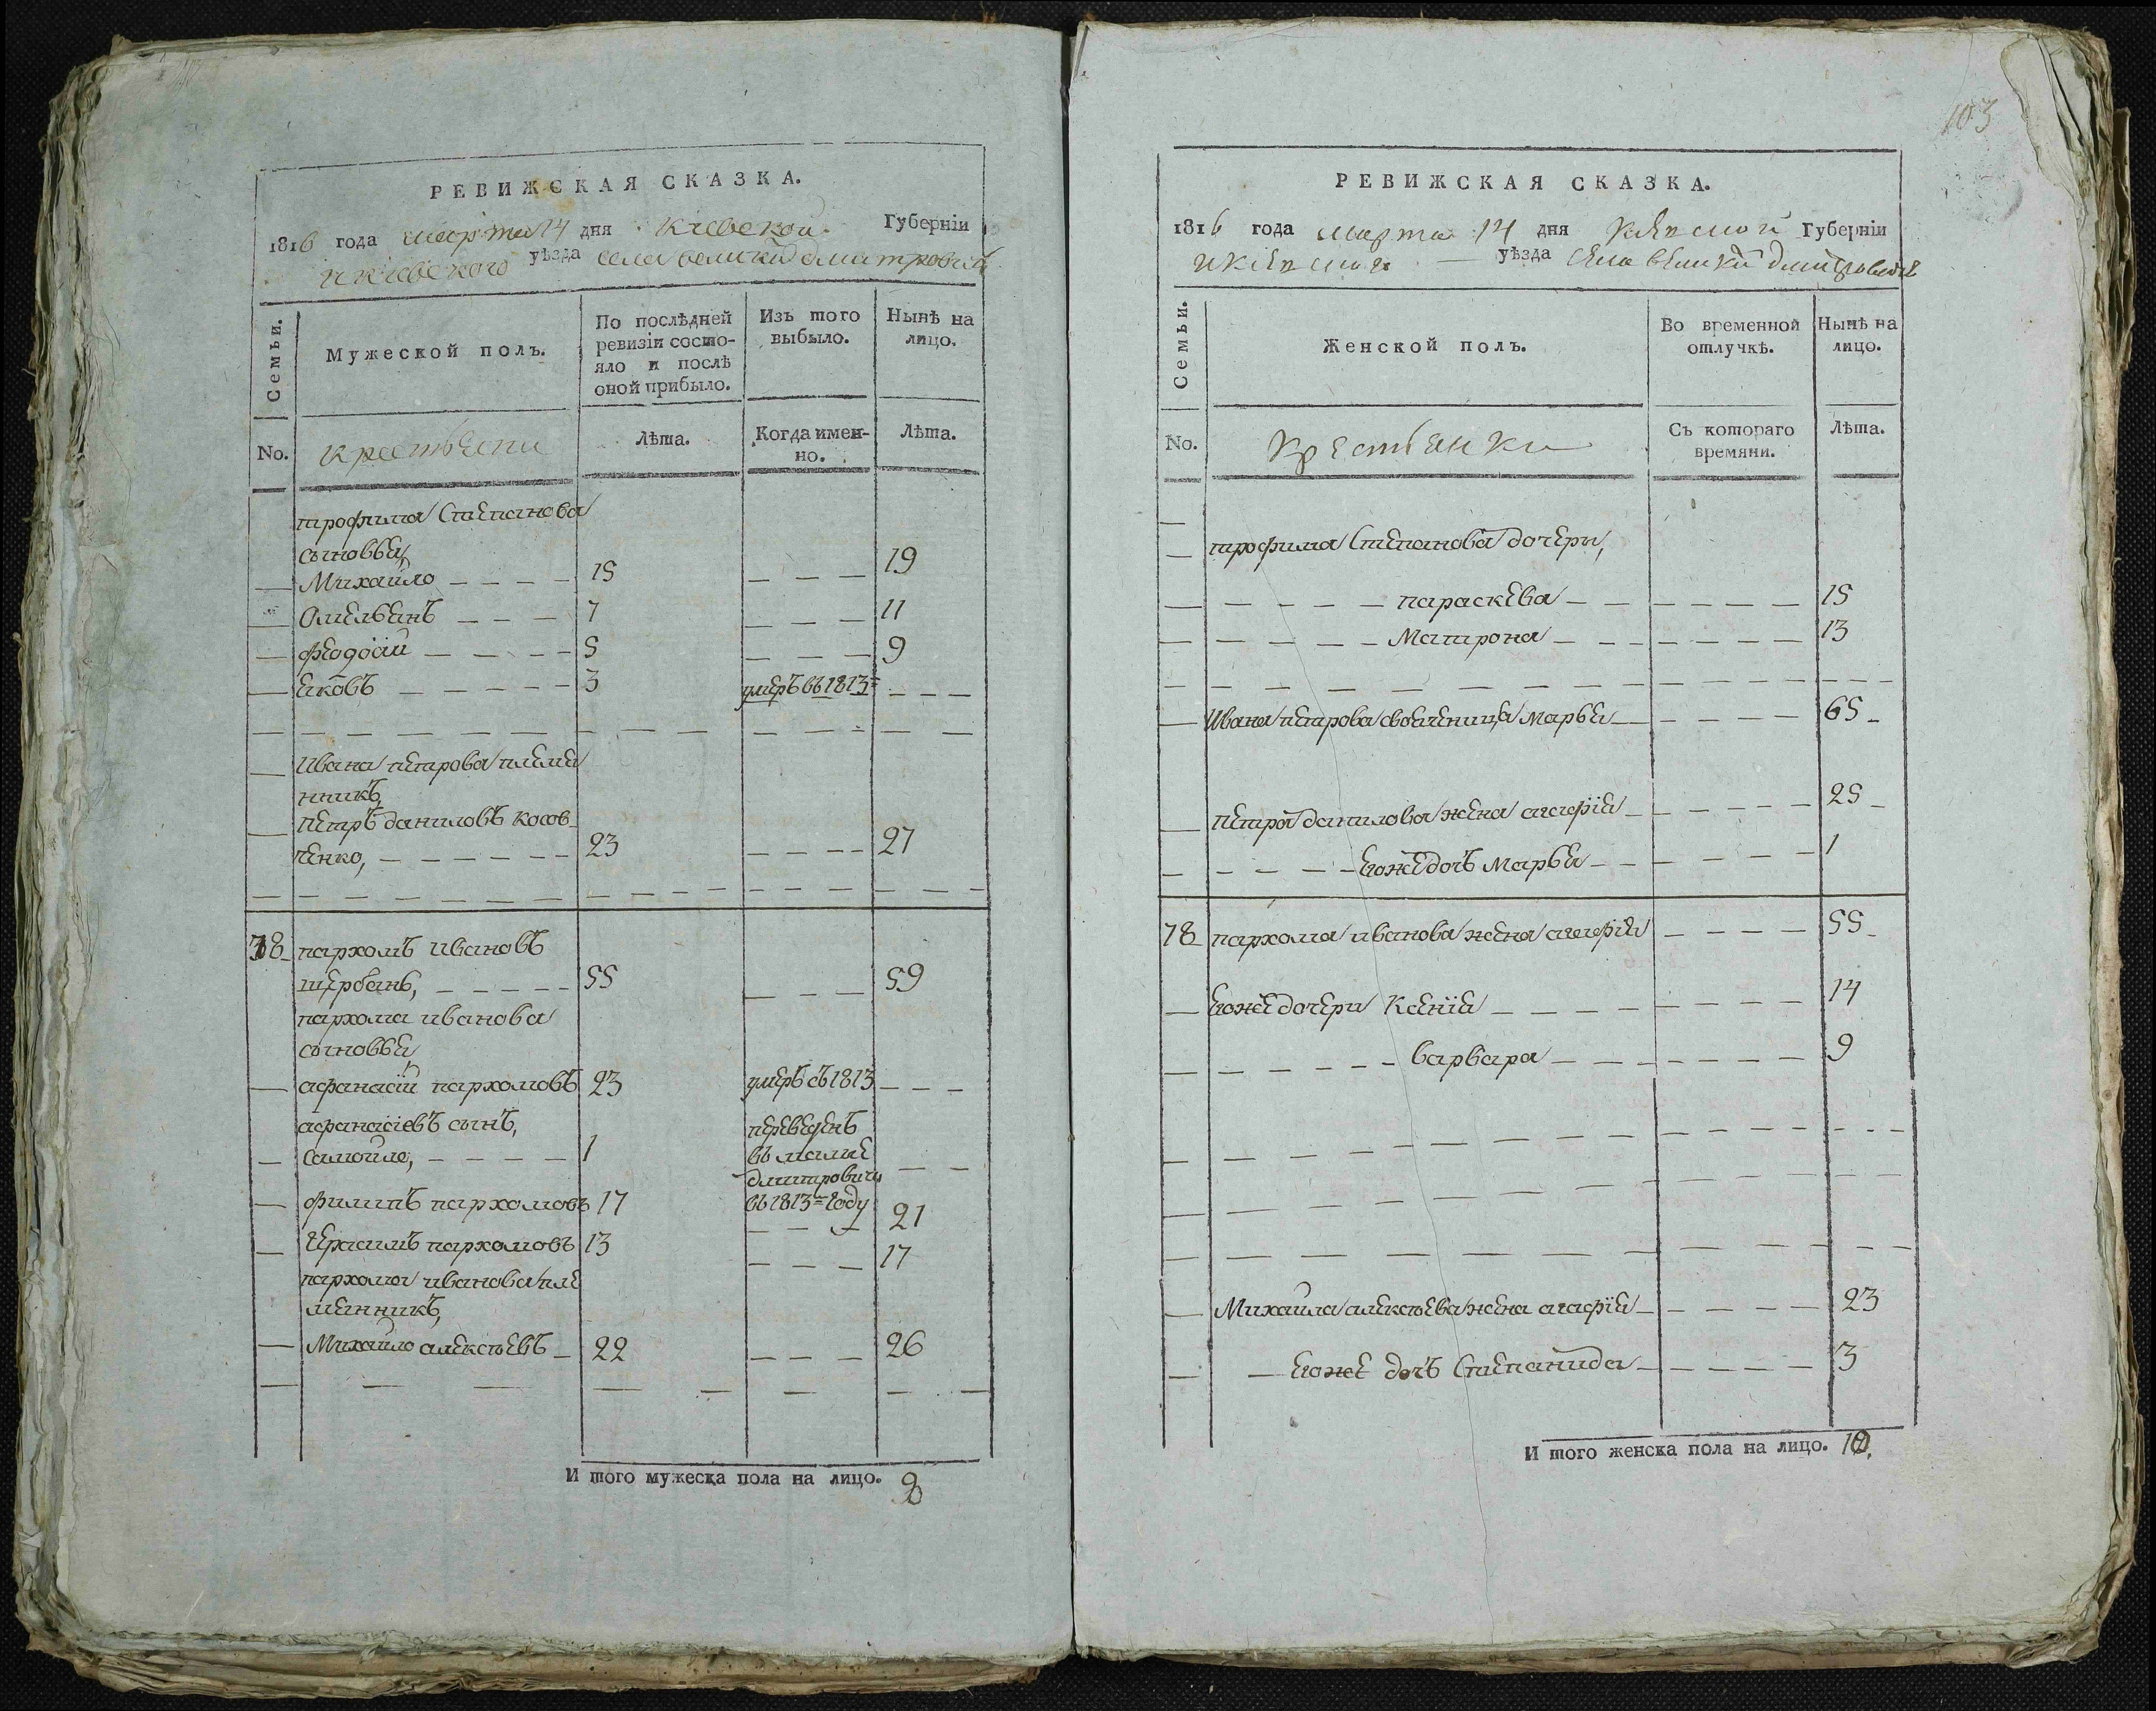 РЕВИЖСКАЯ СКАЗКА.
1816 года марта 14 дня Киевской Губерніи
и киевского уѣзда села великий дмитровичъ
Семьи.
Мужеской полъ.
По послѣдней ревизіи состо-
яло и послѣ
оной прибыло.
Изъ того
выбыло.
Нынѣ на
лицо.
No. крестьяни
Лѣта.
Когда имен-
но.
Лѣта.
трофима Степанова
сыновья,
— Михайло — — — — 15 — — — 19
— Омельянъ — — — 7 — — — 11
— феодосій — — — — 5 — — — 9
— яковъ — — — — — 3 умеръ въ 1813= — — —
— Ивана петрова племя
нникъ,
— петръ даниловъ косов-
ченко, — — — — — — 23 — — — — 27
78 пархомъ ивановъ
щербань, — — — — — 55 — — — 59
пархома иванова
сыновья,
— афанасій пархомовъ 23 умеръ въ 1813 — — —
афанасіевъ сынъ,
— самойло, — — — — 1 переведенъ
въ малые
дмитровичи
въ 1813= году — —
— филипъ пархомовъ 17 — — — 21
— Герасимъ пархомовъ 13 — — — 17
пархома иванова пле
мянникъ,
— Михайло алексѣевъ — 22 — — — 26
И того мужеска пола на лицо. 9
103
РЕВИЖСКАЯ СКАЗКА.
1816 года марта 14 дня Киевской Губерніи
и киевского — уѣзда села великий дмитровичъ
Семьи.
Женской полъ.
Во временной
отлучкѣ.
Нынѣ на
лицо.
No. Крестьянки
Съ котораго
времяни.
Лѣта.
— трофима Степанова дочери,
— — — — — — параскева — — — — — — — 15
— — — — — — Матрона — — — — — — — 13
— Ивана петрова своячница марья — — — — — 65 —
— петра данилова жена агафія — — — — — 25 —
— — — — — егоже дочь марья — — — — — — 1
78 пархома иванова жена агафія — — — — 55 —
— егоже дочери Ксенія — — — — — — — — 14
— — — — — — — варвара — — — — — — — 9
— Михаила алексѣева жена агафія — — — — — 23
— — егоже дочь Степанида — — — — — 3
И того женска пола на лицо. 10.